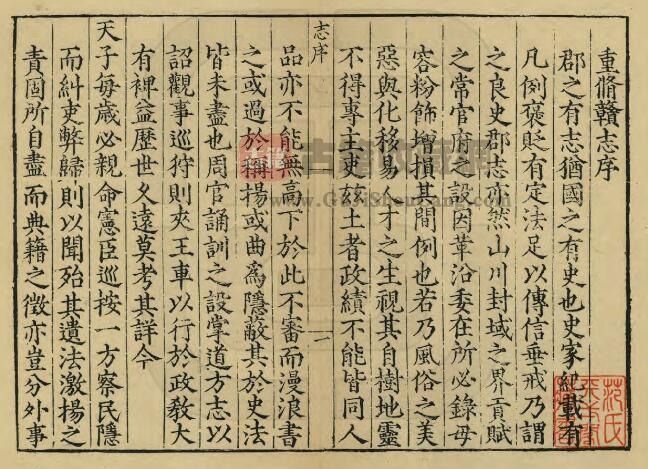 重脩贛志序
郡之有志猶國之有史也史家紀載有
凡例褒貶有定法足以傳信垂戒乃謂
之良史郡志亦然山川封域之界貢賦
之常官府之設因革沿委在所必錄毋
容粉飾增損其間例也若乃風俗之美
惡與化移易人才之生視其自樹地靈
不得專主吏玆土者政績不能皆同人
志序
一
品亦不能無高下於此不審而漫浪書
之或過於稱揚或曲爲隱蔽其於史法
皆未盡也周官誦訓之設掌道方志以
詔觀事巡狩則夾王車以行於政敎大
有裨益歷世久遠莫考其詳今
天子每歲必親命憲臣巡按一方察民隱
而糾吏弊歸則以聞殆其遺法激揚之
責固所自盡而典籍之徵亦豈分外事
古籍收藏網
www.GujiShouCang.com
范氏